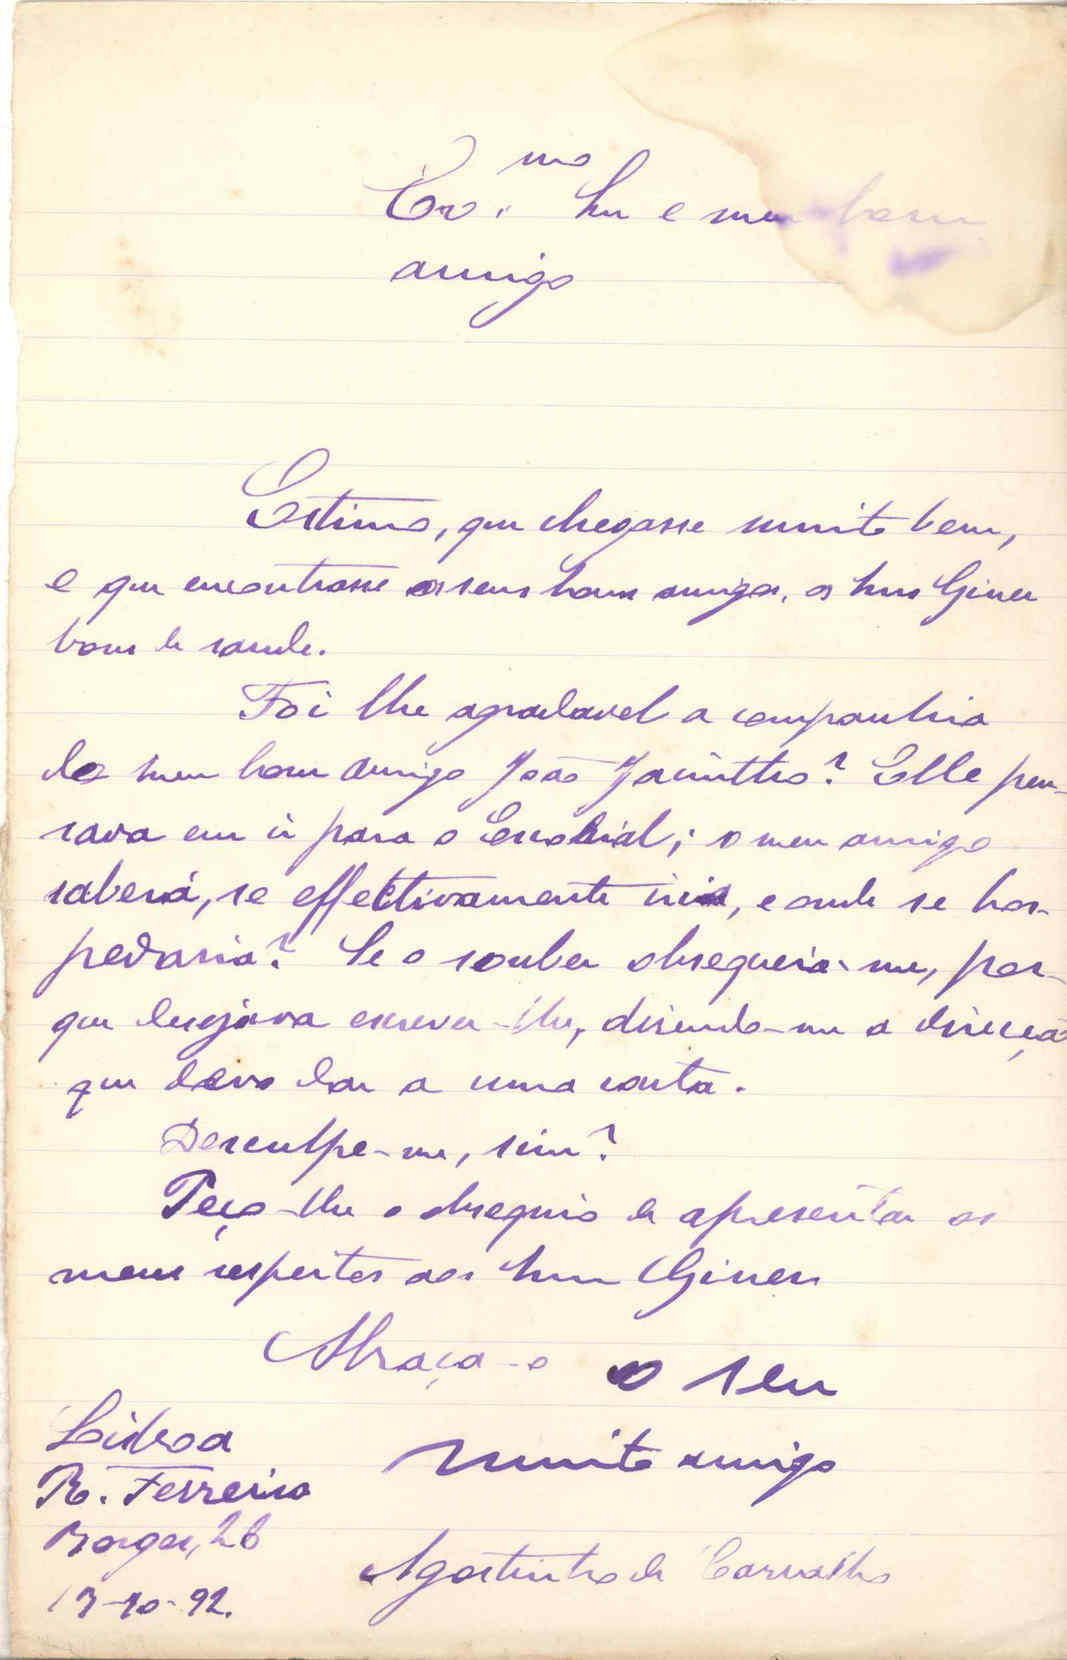 Exmo. Snr e meu bom
amigo
Estimo, que chegasse muito bem,
e que encontrasse os seus bons amigos, os Snrs Giner
bons de saude.
Foi lhe agradavel a companhia
do meu bom amigo João Jacintho? Elle pen-
sava em ir para o Escorial; o meu amigo
saberá, se effectivamente iria, e onde se hos-
pedaria? Se o souber obsequeia-me, por-
que desejava escrever-lhe, disendo-me a direcção
que devo dar a uma carta.
Desculpe-me, sim?
Peço-lhe o obsequio de apresentar os
meus respeitos aos Snrs Giner
Abraça-o o seu
muito amigo
Agostinho de Carvalho
Lisboa
R. Ferreira
Borges, 26
13-10-92.